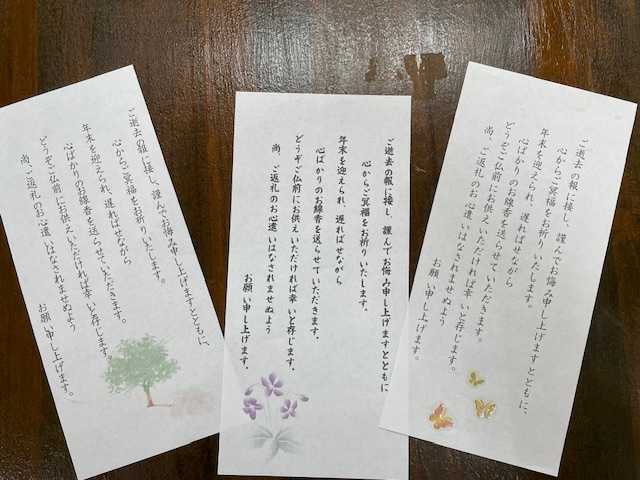 ご逝去の報に接し、謹んでお悔み申し上げますとともに、
心からご冥福をお祈りいたします。
年末を迎えられ、遅ればせながら
心ばかりのお線香を送らせていただきます。
どうぞご仏前にお供えいただければ幸いと存じます。
尚、ご返礼のお心遣いはなされませぬよう
お願い申し上げます。
ご逝去の報に接し、謹んでお悔み申し上げますとともに
心からご冥福をお祈りいたします。
年末を迎えられ、遅ればせながら
心ばかりのお線香を送らせていただきます。
どうぞご仏前にお供えいただければ幸いと存じます。
尚、ご返礼のお心遣いはなされませぬよう
お願い申し上げます。
ご逝去の報に接し、謹んでお悔み申し上げますとともに、
心からご冥福をお祈りいたします。
年末を迎えられ、遅ればせながら
心ばかりのお線香を送らせていただきます。
どうぞご仏前にお供えいただければ幸いと存じます。
尚、ご返礼のお心遣いはなされませぬよう
お願い申し上げます。